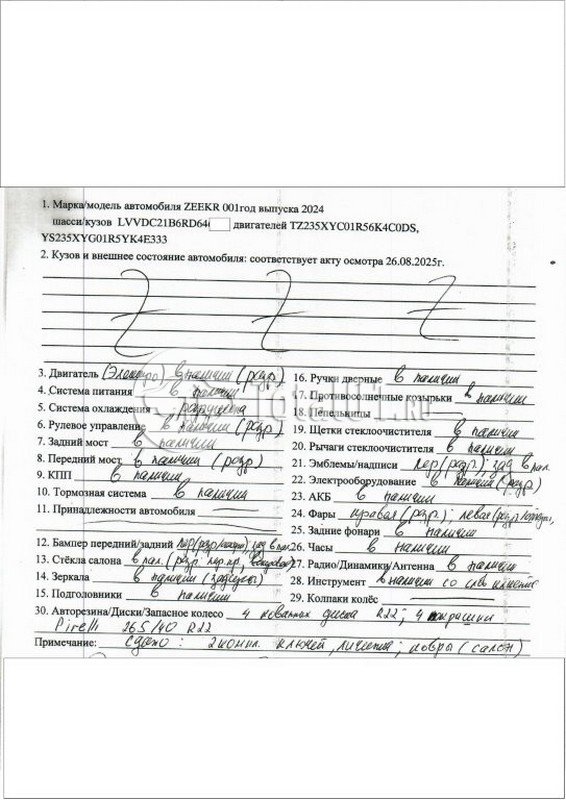 1. Марка/модель автомобиля ZEEKR 001год выпуска 2024
шасси/кузов LVVDC21B6RD64 двигателей TZ235XYC01R56K4C0DS,
YS235XYG01R5YK4E333
2. Кузов и внешнее состояние автомобиля: соответствует акту осмотра 26.08.2025г.
3. Двигатель (Электро) в наличии (разр)
4. Система питания в наличии
5. Система охлаждения разрушена
6. Рулевое управление в наличии (разр.)
7. Задний мост в наличии
8. Передний мост в наличии (разр)
9. КПП в наличии
10. Тормозная система в наличии
11. Принадлежности автомобиля
12. Бампер передний/задний пер(разр); зад в нал.
13. Стёкла салона в нал. (разр. пер.пр,
14. Зеркала в наличии
15. Подголовники в наличии
16. Ручки дверные в наличии
17. Противосолнечные козырьки в наличии
18. Пепельницы
19. Щетки стеклоочистителя в наличии
20. Рычаги стеклоочистителя в наличии
21. Эмблемы/надписи пер(разр.); зад в нал.
22. Электрооборудование в наличии (разр)
23. АКБ в наличии
24. Фары правая (разр.); левая (разр
25. Задние фонари в наличии
26. Часы в наличии
27. Радио/Динамики/Антенна в наличии
28. Инструмент в наличии со слов клиента
29. Колпаки колёс
30. Авторезина/Диски/Запасное колесо 4 кованных диска R22; 4 покрышки
Pirelli 265/40 R22
Примечание: Сдано: 2 компл. ключей, ковры (салон)